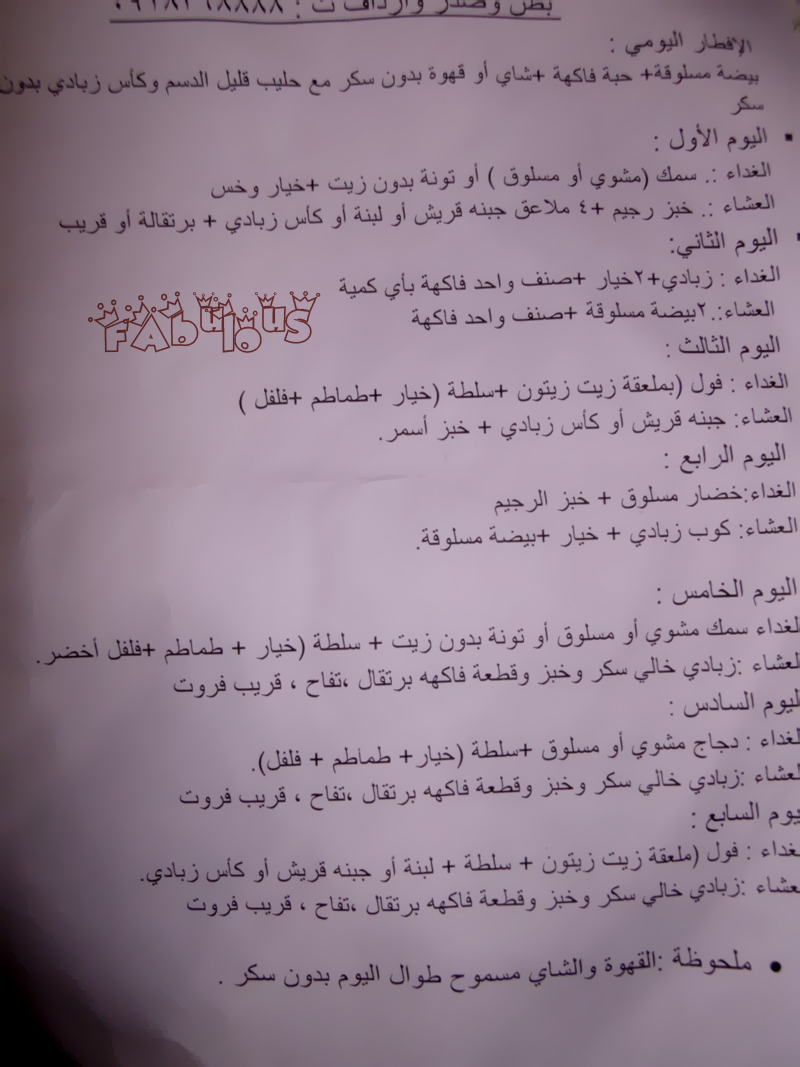 وصدر وأرداف ت :
الإفطار اليومي :
بيضة مسلوقة+ حبة فاكهة +شاي أو قهوة بدون سكر مع حليب قليل الدسم وكأس زبادي بدون
سكر
▪ اليوم الأول :
الغداء :. سمك (مشوي أو مسلوق ) أو تونة بدون زيت +خيار وخس
العشاء :. خبز رجيم +٤ ملاعق جبنه قريش أو لبنة أو كأس زبادي + برتقالة أو قريب
▪ اليوم الثاني:
الغداء : زبادي+٢خيار +صنف واحد فاكهة بأي كمية
العشاء:.٢بيضة مسلوقة +صنف واحد فاكهة
FABULOUS
اليوم الثالث :
الغداء : فول (بملعقة زيت زيتون +سلطة (خيار +طماطم +فلفل )
العشاء: جبنه قريش أو كأس زبادي + خبز أسمر.
اليوم الرابع :
الغداء:خضار مسلوق + خبز الرجيم
العشاء: كوب زبادي + خيار +بيضة مسلوقة.
اليوم الخامس :
لغداء سمك مشوي أو مسلوق أو تونة بدون زيت + سلطة (خيار + طماطم +فلفل أخضر.
لعشاء :زبادي خالي سكر وخبز وقطعة فاكهه برتقال ،تفاح ، قريب فروت
ليوم السادس :
لغداء : دجاج مشوي أو مسلوق +سلطة (خيار+ طماطم + فلفل).
لعشاء :زبادي خالي سكر وخبز وقطعة فاكهه برتقال ،تفاح ، قريب فروت
يوم السابع :
غداء : فول (ملعقة زيت زيتون + سلطة + لبنة أو جبنه قريش أو كأس زبادي.
عشاء :زبادي خالي سكر وخبز وقطعة فاكهه برتقال ،تفاح ، قريب فروت
• ملحوظة :القهوة والشاي مسموح طوال اليوم بدون سكر .